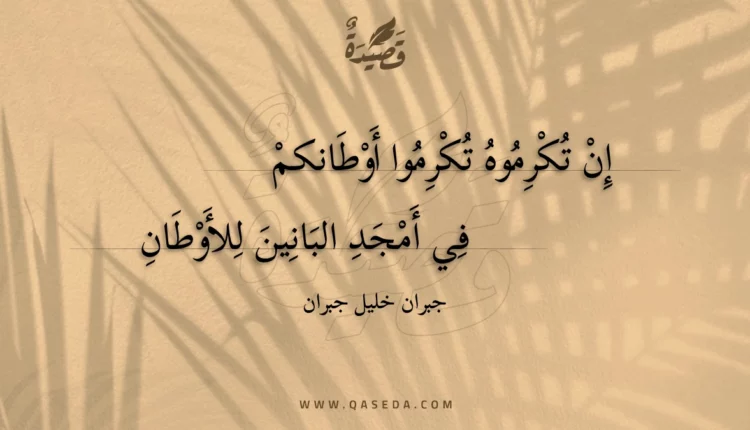 قَصِيْدَةٌ
إِنْ تُكْرِمُوهُ تُكْرِمُوا أَوْطَانكمْ
فِي أَمْجَدِ البَانِينَ لِلأَوْطَانِ
جبران خليل جبران
WWW.QASEDA.COM